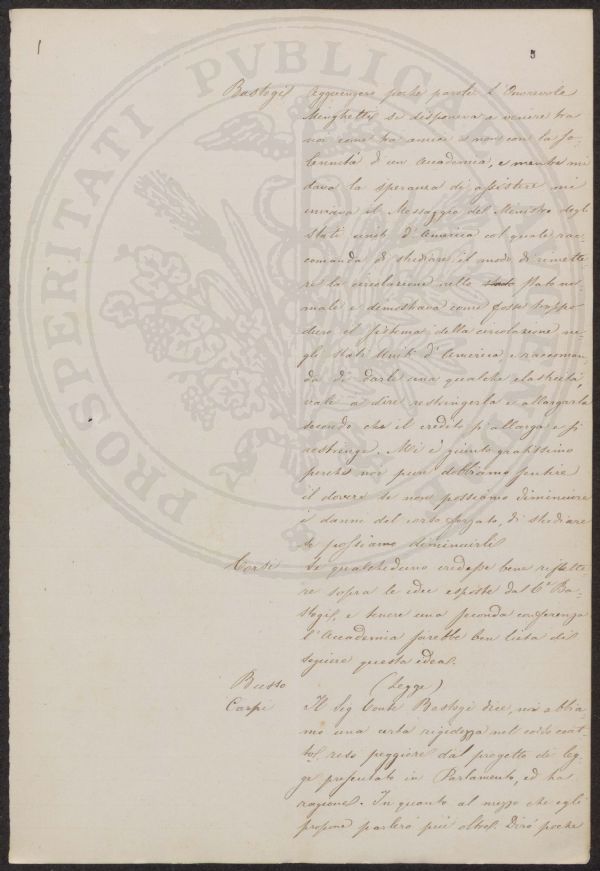 PROSPERITATI PVBLICAE
1
3
Bastogi Aggiungere poche parole. L'Onorevole
Minghetti se disponeva a venire tra
noi come tra amici e non con la so-
lennità d'un Accademia, e mentre mi
dava la speranza di assistere mi
inviava il Messaggio del Ministro degli
Stati uniti d'America col quale rac-
comanda di studiare il modo di rimette
re la circolazione nello stato no
male e dimostrava come fosse troppo
duro il sistema della circolazione ne-
gli Stati Uniti d'America, e raccoman
da di darle una qualche elasticità,
vale a dire restringerla e allargarla
secondo che il credito si allarga e si
restringe. Mi è giunto gratissimo
perchè noi pure dobbiamo sentire
il dovere se non possiamo diminuire
i danni del corso forzato, di studiare
se possiamo diminuirli
Corsi Se qualcheduno credesse bene riflette-
re sopra le idee esposte dal Cte Ba-
stogi, e tenere una seconda conferenza
l'Accademia sarebbe ben lieta di
seguire questa idea.
Busso (Legge)
Carpi Il Sig Conte Bastogi dice, noi abbia-
mo una certa rigidezza nel
reso peggiore dal progetto di leg
ge presentato in Parlamento, ed ha
ragione. In quanto al mezzo che egli
propone parlerò più oltre. Dirò poche